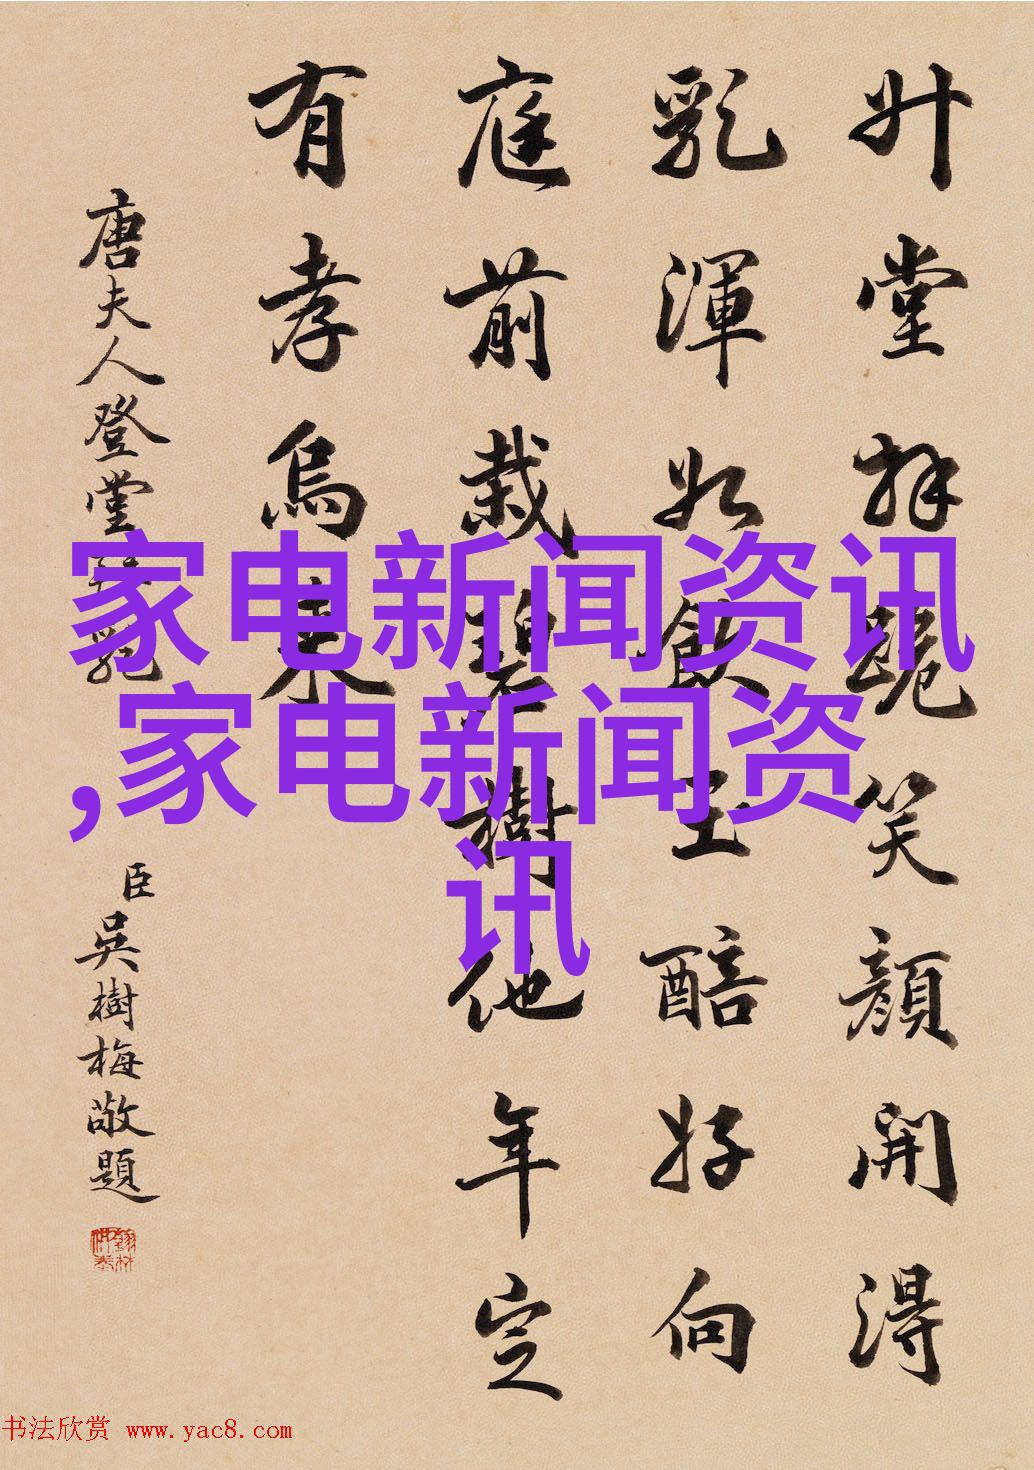 升堂拜跪笑顔開得
乳渾如飲玉醅好向
庭前栽碧樹他年定
有孝烏來
唐夫人登堂拜乳
臣吳樹梅敬題
家电新闻资讯
,家电新闻资
讯
书法欣赏 www.yac8.com